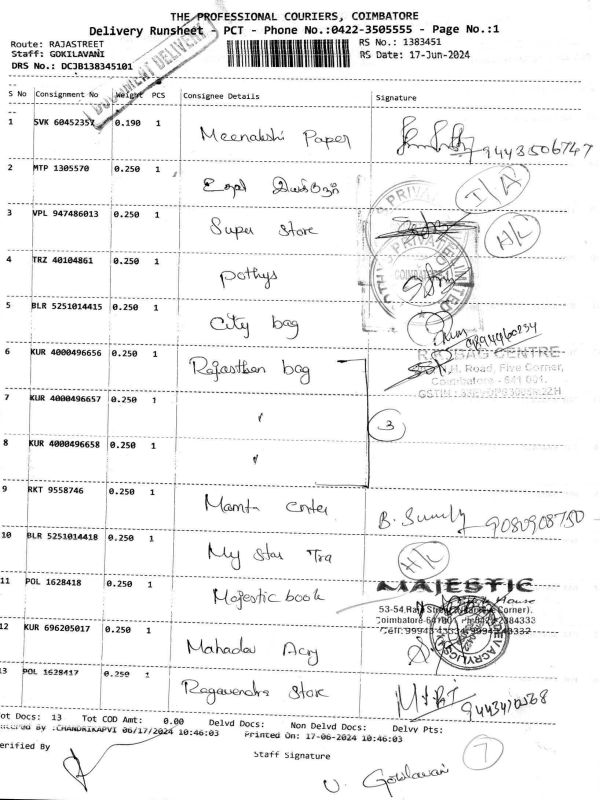 THE PROFESSIONAL COURIERS, COIMBATORE
Delivery Runsheet - PCT - Phone No.:0422-3505555 - Page No.:1
Route: RAJASTREET
Staff: GOKILAVANI
DRS No.: DCJB138345101
RS No.: 1383451
RS Date: 17-Jun-2024
DOCUMENT DELIVERY
S No Consignment No Weight PCS Consignee Details Signature
1 SVK 60452357 0.190 1 Meenakshi Paper 9443506747
2 MTP 1305570 0.250 1 I/A
3 VPL 947486013 0.250 1 Super Store H/L
4 TRZ 40104861 0.250 1 pothys
PRIVATE LIMITED
COIMBATORE
5 BLR 5251014415 0.250 1 City bag
6 KUR 4000496656 0.250 1 Rajasthan bag
BAG CENTRE
H. Road, Five Corner,
Coimbatore - 641 001.
7 KUR 4000496657 0.250 1 "
3
8 KUR 4000496658 0.250 1 "
9 RKT 9558746 0.250 1 Mamta Center 9080908750
10 BLR 5251014418 0.250 1 My Star Tra H/L
11 POL 1628418 0.250 1 Majestic book
MAJESTIC
House
12 KUR 696205017 0.250 1 Mahadev Acry
13 POL 1628417 0.250 1 Ragavendra Store
Tot Docs: 13 Tot COD Amt: 0.00 Delvd Docs: Non Delvd Docs: Delvy Pts:
Entered By :CHANDRIKAPVI 06/17/2024 10:46:03 Printed On: 17-06-2024 10:46:03
7
Verified By
Staff Signature
V. Gokilavani